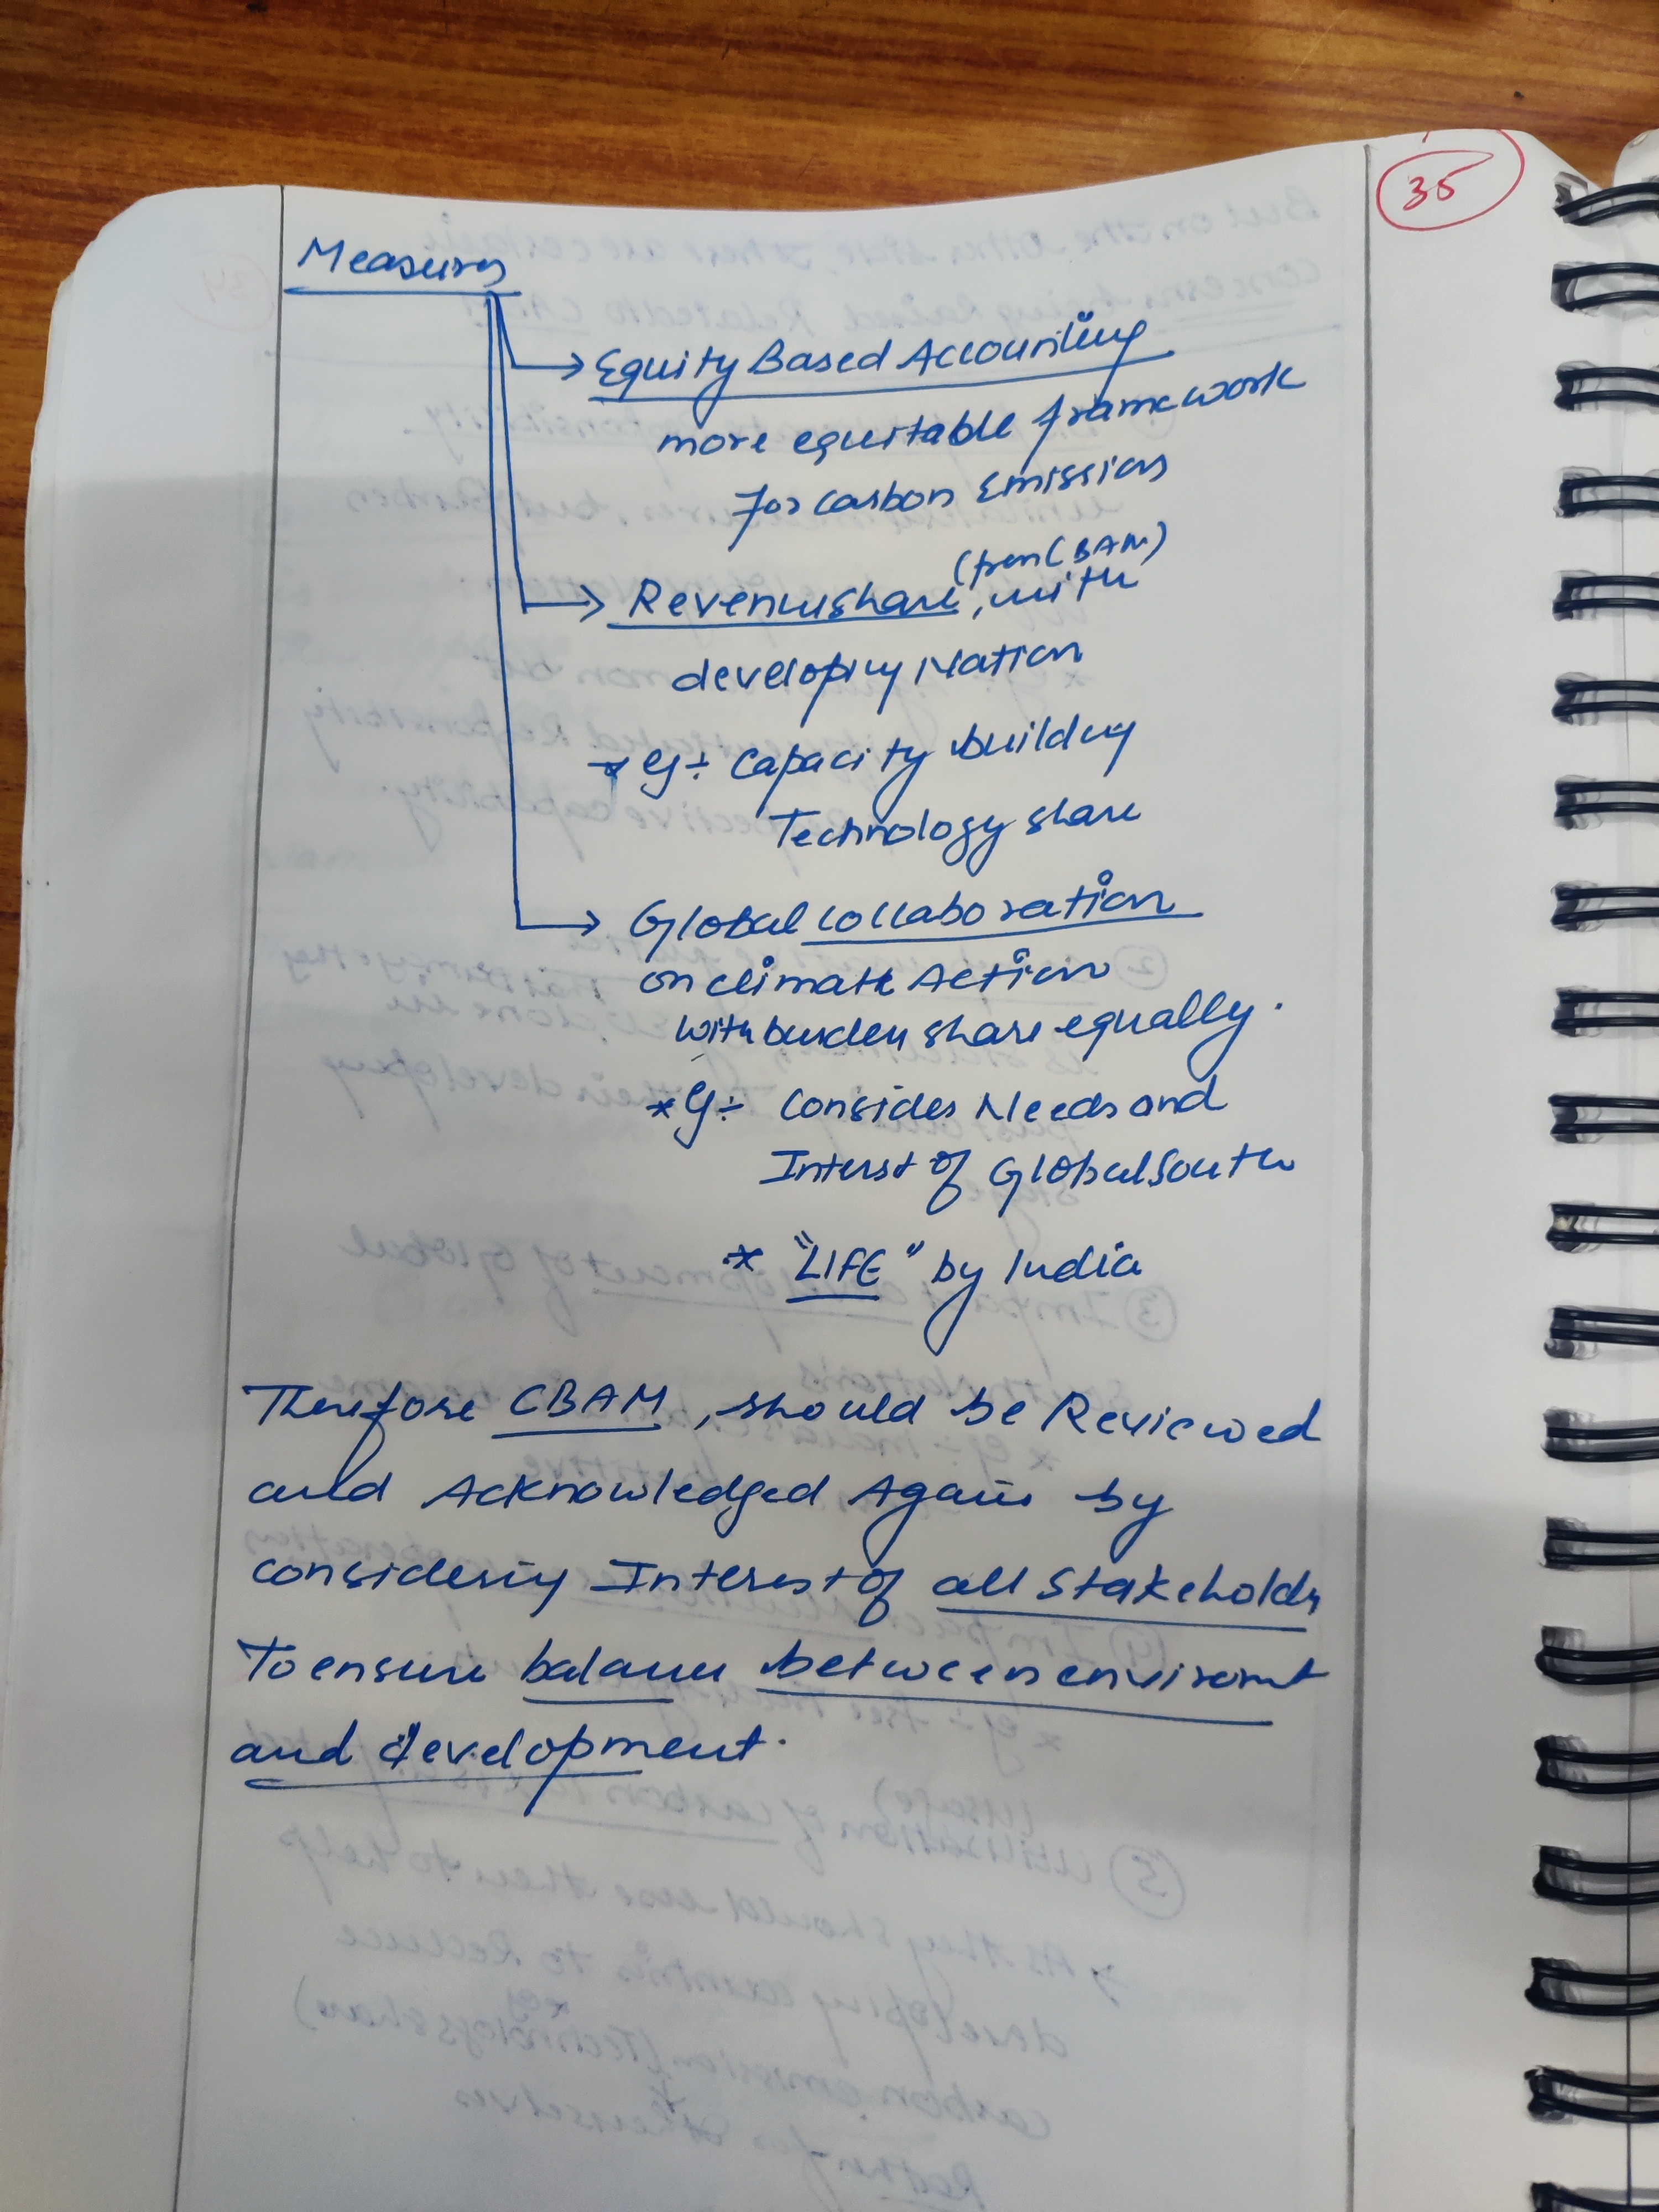 35
Measures
Equity Based Accounting
more equitable framework
for carbon Emission
(from CBAM)
Revenue share, with
developing Nation
* eg:- Capacity building
Technology share
Global collaboration
on climate Action
with burden share equally.
* eg:- Consider Needs and
Interst of Global South
* "LIFE" by India
Therefore CBAM, should be Reviewed
and Acknowledged Again by
considering Interest of all Stakeholders
To ensure balance between enviromt
and development.